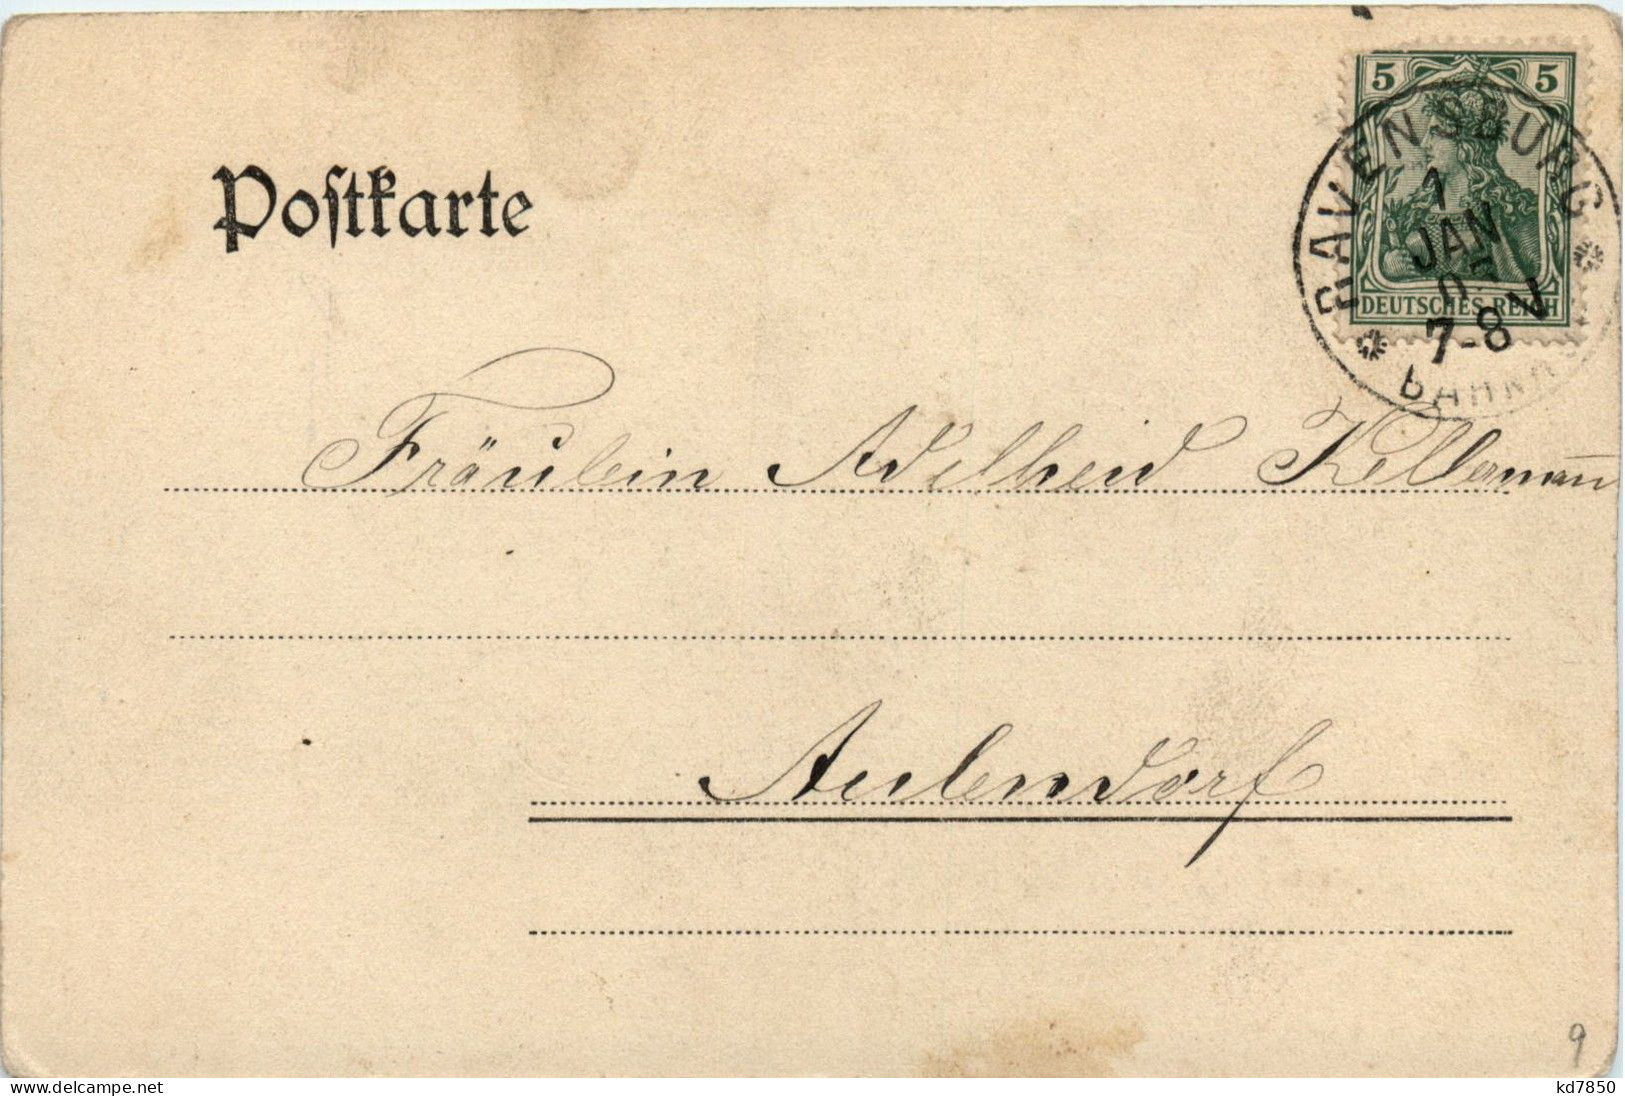 Postkarte
5 5
DEUTSCHES REICH
RAVENSBURG
1
JAN
7-8 V
Fräulein Adelheid Kellermann
Aulendorf
9
www.delcampe.net
kd7850